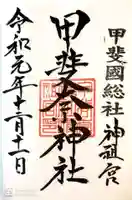 甲斐國総社神祖宮
甲斐奈神社
令和元年十二月十一日